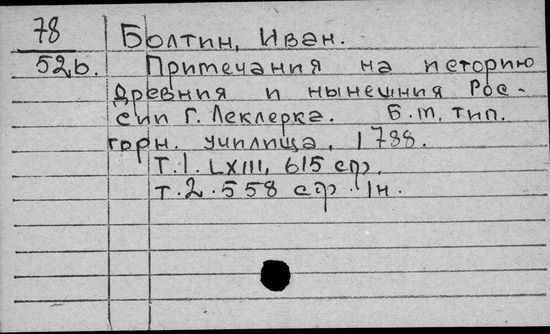 78 Болтин, Иван.
52b. Примечания на историю
древния и нынешния Рос-
сии г. Леклерка. Б.м, тип.
горн. училища, 1788.
Т.1. LXIII, 615 стр.
т.2. 558 стр. 1н.